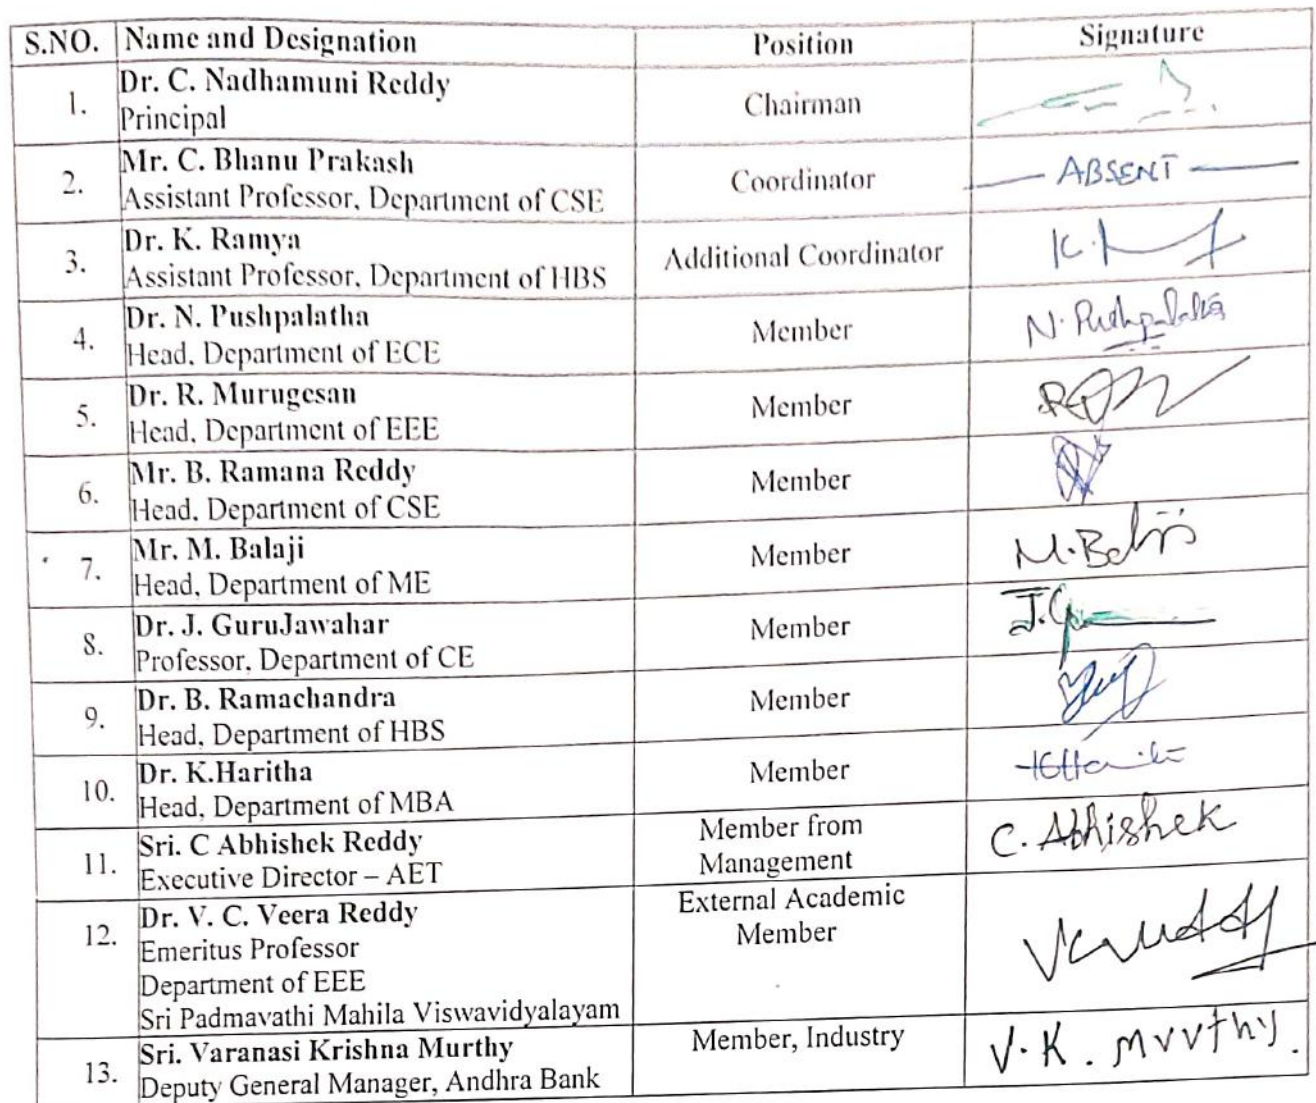 S.NO. Name and Designation Position Signature
1. Dr. C. Nadhamuni Reddy
Principal Chairman
2. Mr. C. Bhanu Prakash
Assistant Professor, Department of CSE Coordinator ABSENT
3. Dr. K. Ramya
Assistant Professor, Department of HBS Additional Coordinator K.
4. Dr. N. Pushpalatha
Head, Department of ECE Member N. Pushpalatha
5. Dr. R. Murugesan
Head, Department of EEE Member
6. Mr. B. Ramana Reddy
Head, Department of CSE Member
7. Mr. M. Balaji
Head, Department of ME Member M. Balaji
8. Dr. J. GuruJawahar
Professor, Department of CE Member J.
9. Dr. B. Ramachandra
Head, Department of HBS Member
10. Dr. K.Haritha
Head, Department of MBA Member
11. Sri. C Abhishek Reddy
Executive Director – AET
Member from
Management
C. Abhishek
12. Dr. V. C. Veera Reddy
Emeritus Professor
Department of EEE
Sri Padmavathi Mahila Viswavidyalayam
External Academic
Member
13. Sri. Varanasi Krishna Murthy
Deputy General Manager, Andhra Bank
Member, Industry
V. K. Mvvthy.